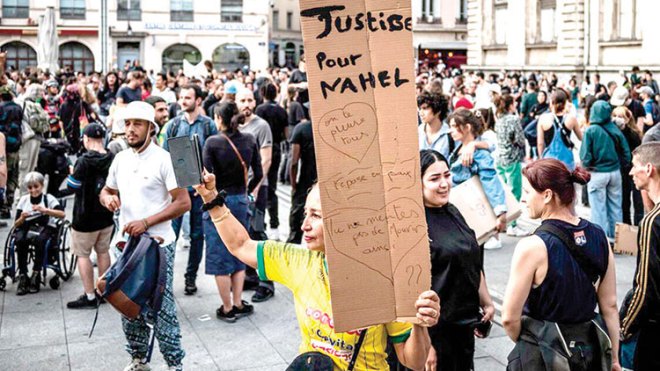 JUSTICE
Pour
NAHEL
on te
pleure
tous
Repose en paix
Tu ne méritais
pas de mourir
ainsi
??
OL